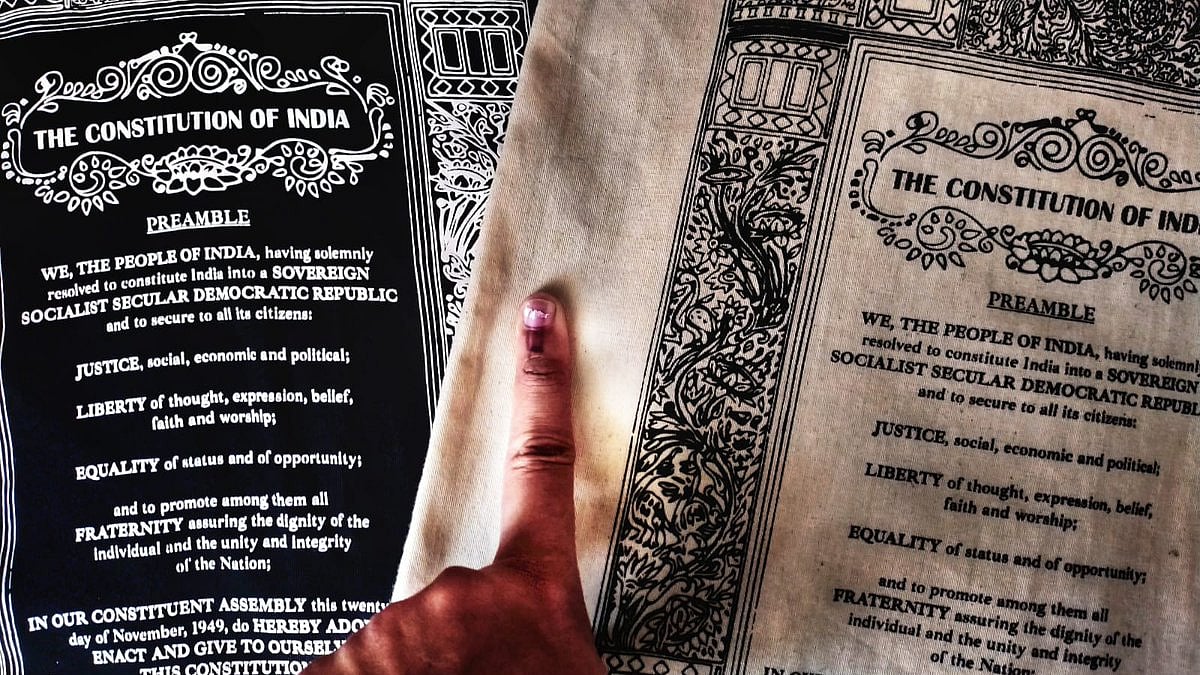 THE CONSTITUTION OF INDIA
PREAMBLE
WE, THE PEOPLE OF INDIA, having solemnly
resolved to constitute India into a SOVEREIGN
SOCIALIST SECULAR DEMOCRATIC REPUBLIC
and to secure to all its citizens:
JUSTICE, social, economic and political;
LIBERTY of thought, expression, belief,
faith and worship;
EQUALITY of status and of opportunity;
and to promote among them all
FRATERNITY assuring the dignity of the
individual and the unity and integrity
of the Nation;
IN OUR CONSTITUENT ASSEMBLY this twenty
day of November, 1949, do HEREBY ADO
ENACT AND GIVE TO OURSEL
THIS CONSTITUTION
THE CONSTITUTION OF IND
PREAMBLE
WE, THE PEOPLE OF INDIA, having solemn
resolved to constitute India into a SOVEREIGN
SOCIALIST SECULAR DEMOCRATIC REPUB
and to secure to all its citizens:
JUSTICE, social, economic and political;
LIBERTY of thought, expression, belief,
faith and worship;
EQUALITY of status and of opportunity;
and to promote among them all
FRATERNITY assuring the dignity of the
individual and the unity and integrity
of the Nation;